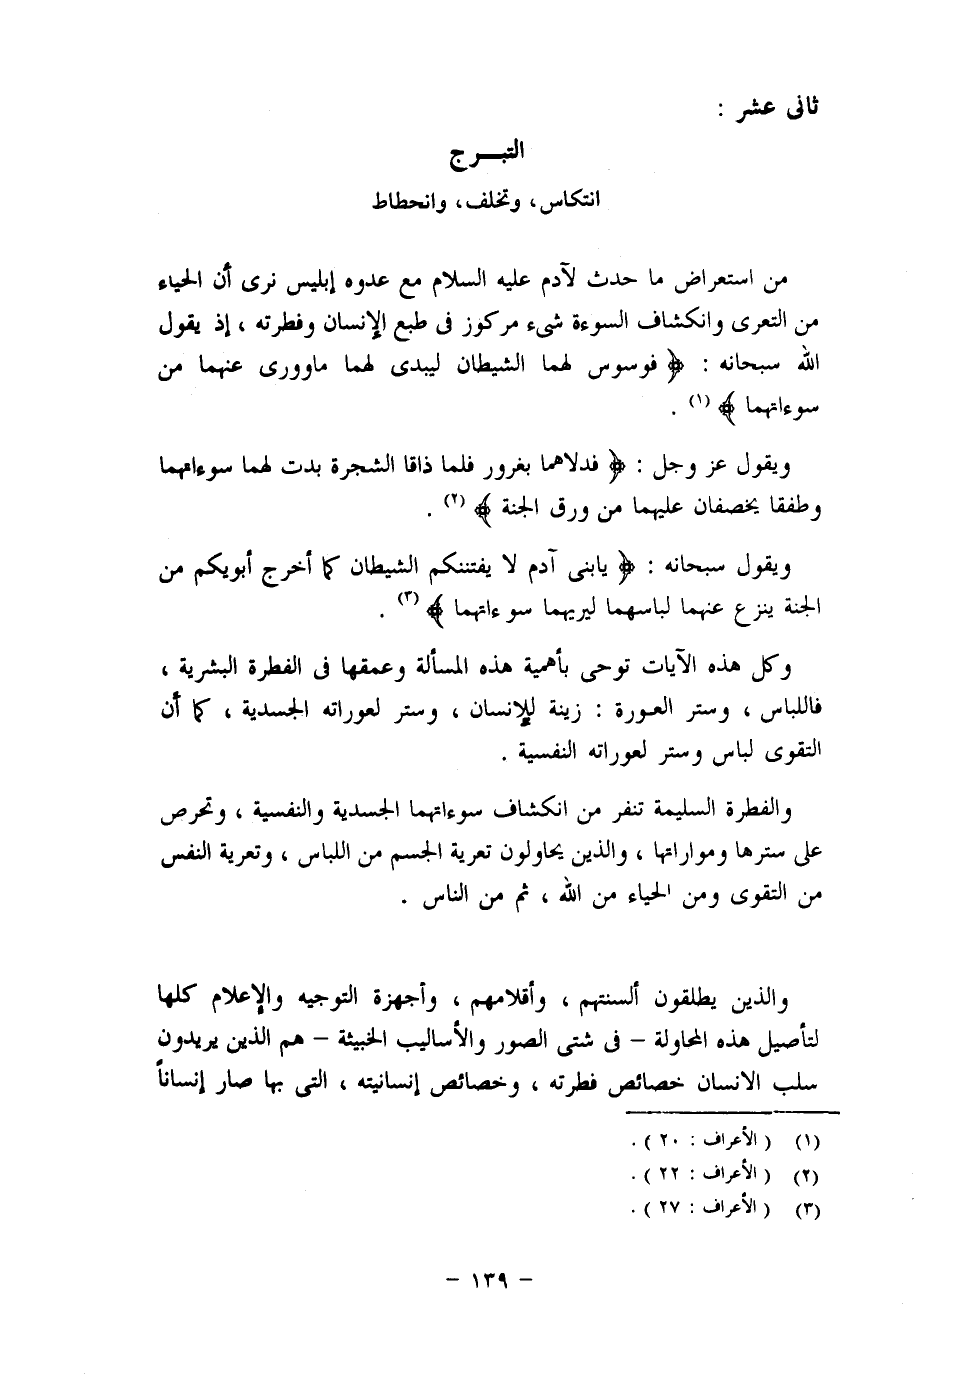 ثانى عشر :
التبـــرج
انتكاس، وتخلف، وانحطاط
من استعراض ما حدث لآدم عليه السلام مع عدوه إبليس نرى أن الحياء
من التعرى وانكشاف السوءة شىء مركوز فى طبع الإنسان وفطرته ، إذ يقول
الله سبحانه : ﴿ فوسوس لهما الشيطان ليبدى لهما ماوورى عنهما من
سوءاتهما ﴾ (١) .
ويقول عز وجل : ﴿ فدلاهما بغرور فلما ذاقا الشجرة بدت لهما سوءاتهما
وطفقا يخصفان عليهما من ورق الجنة ﴾ (٢) .
ويقول سبحانه : ﴿ يابنى آدم لا يفتننكم الشيطان كما أخرج أبويكم من
الجنة ينزع عنهما لباسهما ليريهما سوءاتهما ﴾ (٣) .
وكل هذه الآيات توحى بأهمية هذه المسألة وعمقها فى الفطرة البشرية ،
فاللباس ، وستر العورة : زينة للإنسان ، وستر لعوراته الجسدية ، كما أن
التقوى لباس وستر لعوراته النفسية .
والفطرة السليمة تنفر من انكشاف سوءاتهما الجسدية والنفسية ، وتحرص
على سترها ومواراتها ، والذين يحاولون تعرية الجسم من اللباس ، وتعرية النفس
من التقوى ومن الحياء من الله ، ثم من الناس .
والذين يطلقون ألسنتهم ، وأقلامهم ، وأجهزة التوجيه والإعلام كلها
لتأصيل هذه المحاولة – فى شتى الصور والأساليب الخبيثة – هم الذين يريدون
سلب الانسان خصائص فطرته ، وخصائص إنسانيته ، التى بها صار إنساناً
(١) ( الأعراف : ٢٠ ) .
(٢) ( الأعراف : ٢٢ ) .
(٣) ( الأعراف : ٢٧ ) .
– ١٣٩ –